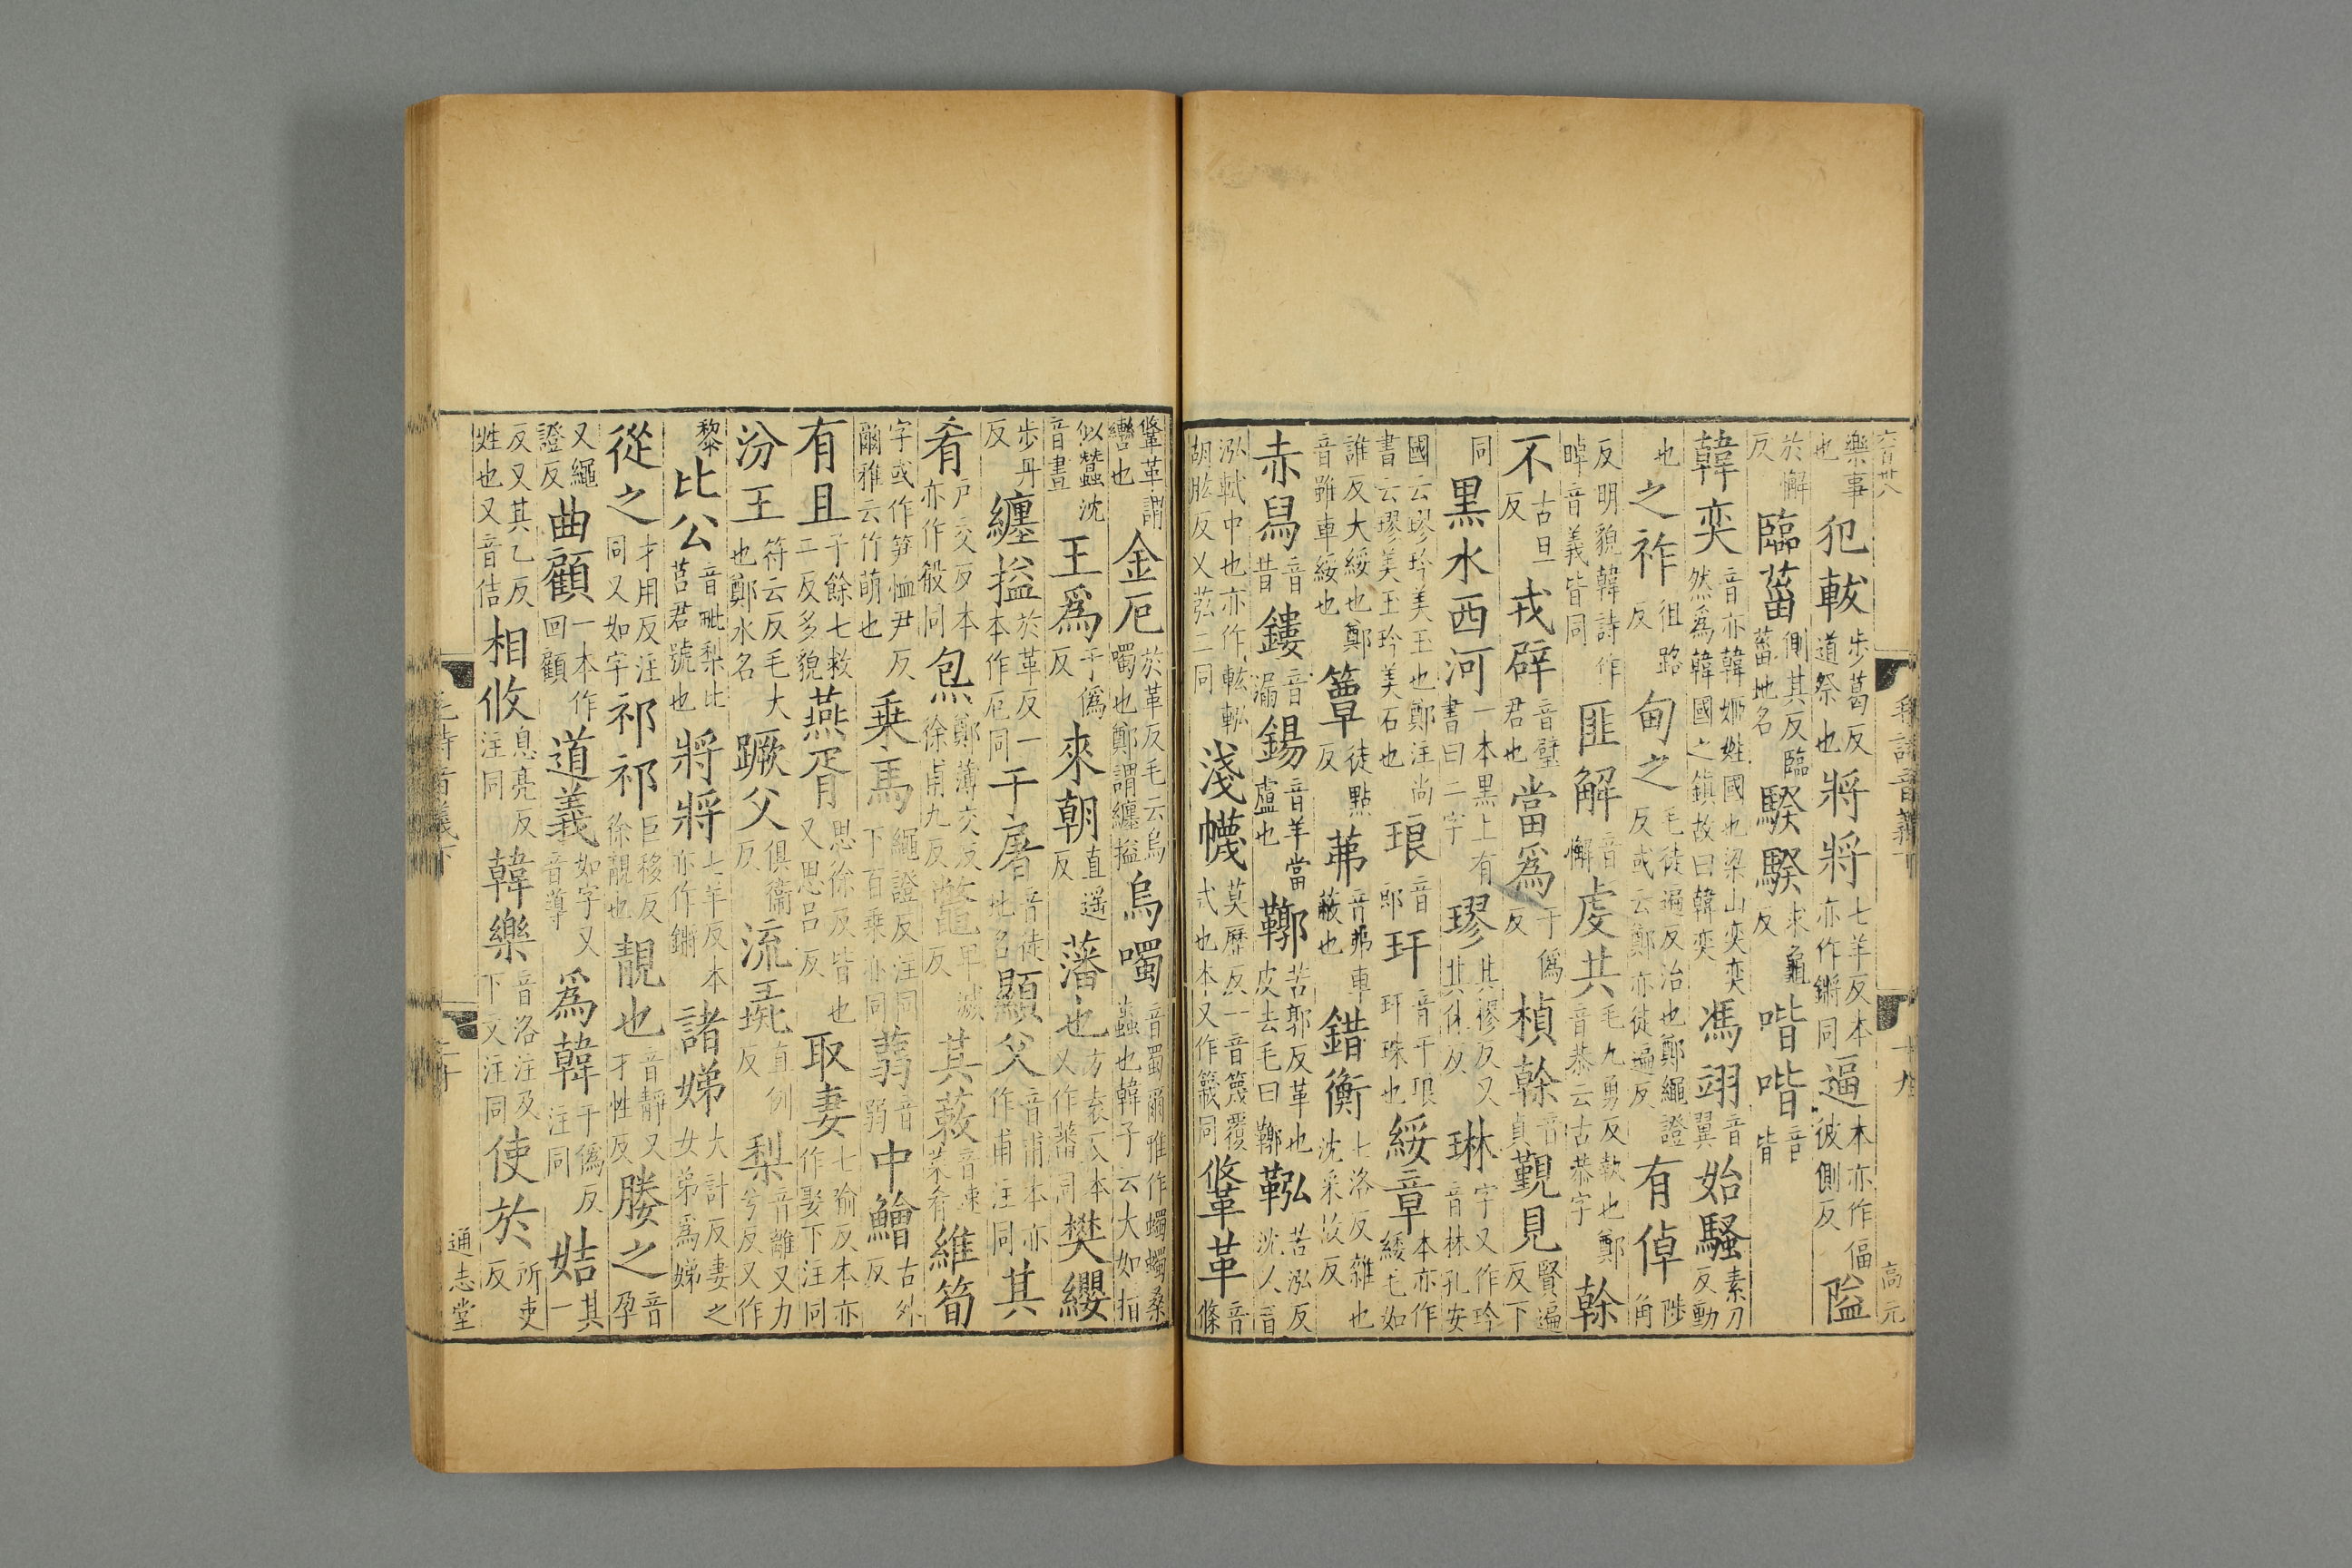 樂事也犯軷步葛反道祭也將將七羊反本亦作鏘同逼本亦作偪彼側反隘
於懈反臨菑側其反臨菑地名騤騤求龜反喈喈音皆
韓奕音亦韓姬姓國也梁山奕奕然爲韓國之鎮故曰韓奕馮翊音翼始騷素刀反動
也之祚徂路反甸之毛徒遍反治也鄭繩證反或云鄭亦徒遍反有倬陟角
反明貌韓詩作晫音義皆同匪解音懈虔共毛九勇反執也鄭音恭云古恭字榦
不古旦反戎辟音璧君也當爲于僞反楨榦音貞覲見賢遍反下
同黑水西河一本黑上有書曰二字璆其樛反又其休反琳字又作玪音林孔安
國云璆玪美玉也鄭注尚書云璆美玉玪美石也琅音郎玕音干琅玕珠也綏章本亦作緌毛如
誰反大綏也鄭音雖車綏也簟徒點反茀音弗車蔽也錯衡七洛反雜也沈采故反
赤舄音昔鏤音漏鍚音羊當盧也鞹苦郭反革也皮去毛曰鞹鞃苦泓反沈人音
泓軾中也亦作䡌軚胡肱反又苰二同淺幭莫歷反一音篾覆式也本又作簚同鞗革音條
鞗革謂轡也金厄於革反毛云烏噣也鄭謂纏搤烏噣音蜀爾雅作蠋蠋桑蟲也韓子云大如指
似蠶沈音晝王爲于僞反來朝直遥反藩也方袁反本又作蕃同樊纓
步丹反纏搤於革反一本作厄同于屠音徒地名顯父音甫本亦作甫注同其
肴戶交反本亦作殽同炰鄭薄交反徐甫九反鼈卑滅反其蔌音速菜肴維筍
字或作笋恤尹反爾雅云竹萌也乗馬繩證反注同下百乗亦同蒻音弱中鱠古外反
有且子餘七救二反多貌燕胥思徐反皆也又思呂反取妻七喻反本亦作娶下注同
汾王符云反毛大也鄭水名蹶父俱衞反流彘直例反梨音離又力兮反又作
黎比公音毗梨比莒君號也將將七羊反本亦作鏘諸娣大計反妻之女弟爲娣
從之才用反注同又如字祁祁巨移反徐靚也靚也音靜又才性反媵之音孕
又繩證反曲顧一本作回顧道義如字又音導爲韓于僞反注同姞其一
反又其乙反姓也又音佶相攸息亮反注同韓樂音洛注及下文注同使於所吏反
高元
通志堂